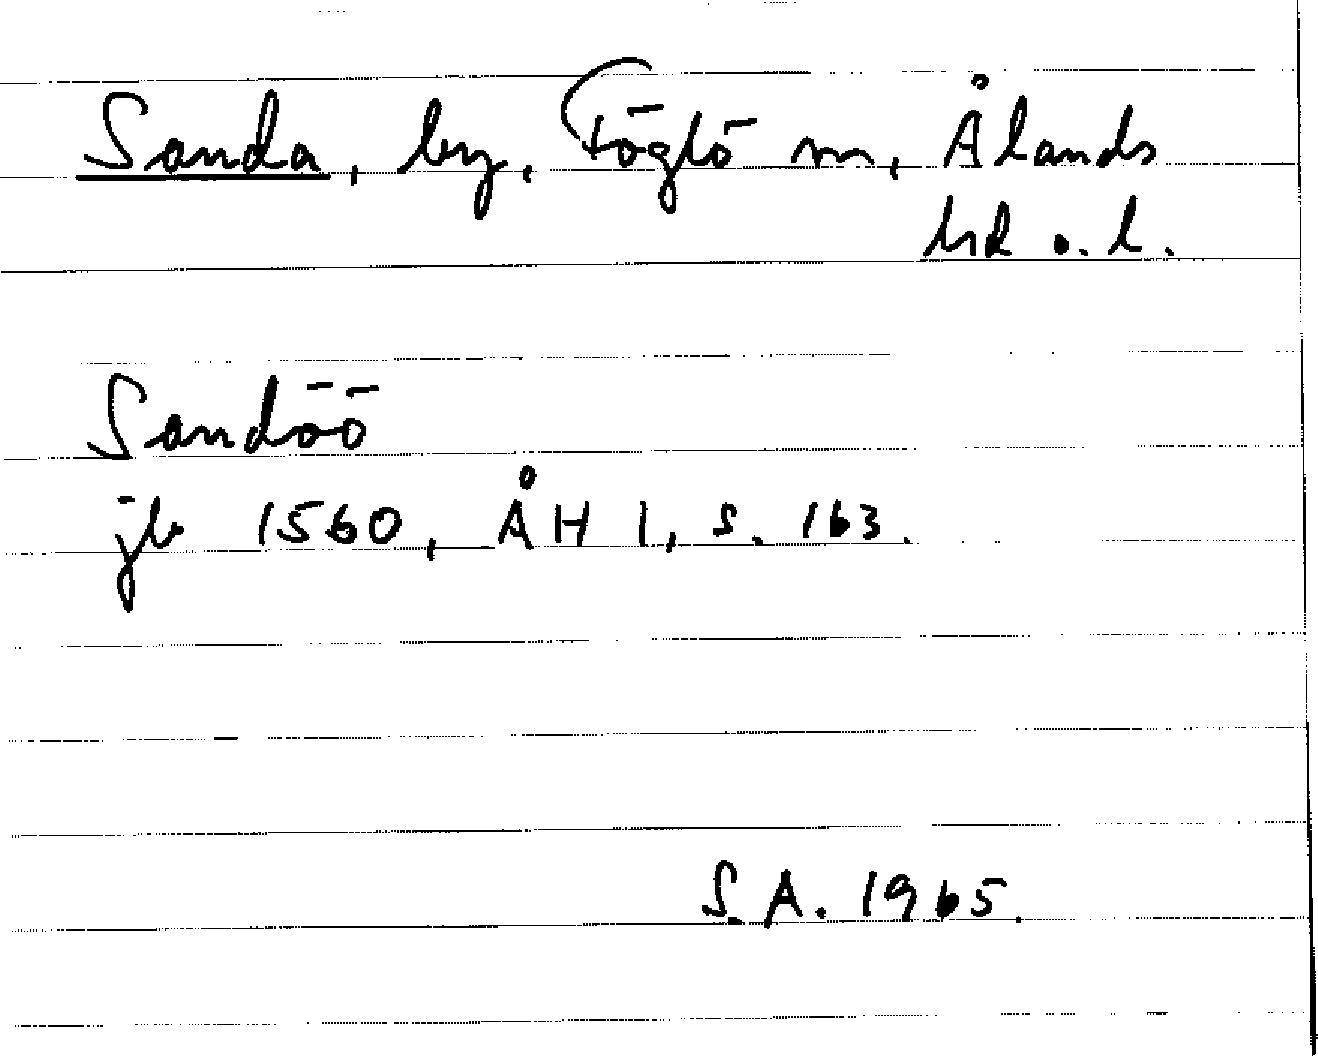 Sanda, by, Föglö sn, Ålands
hd o. l.
Sandöö
jb 1560, ÅH 1, s. 163.
S.A. 1965.